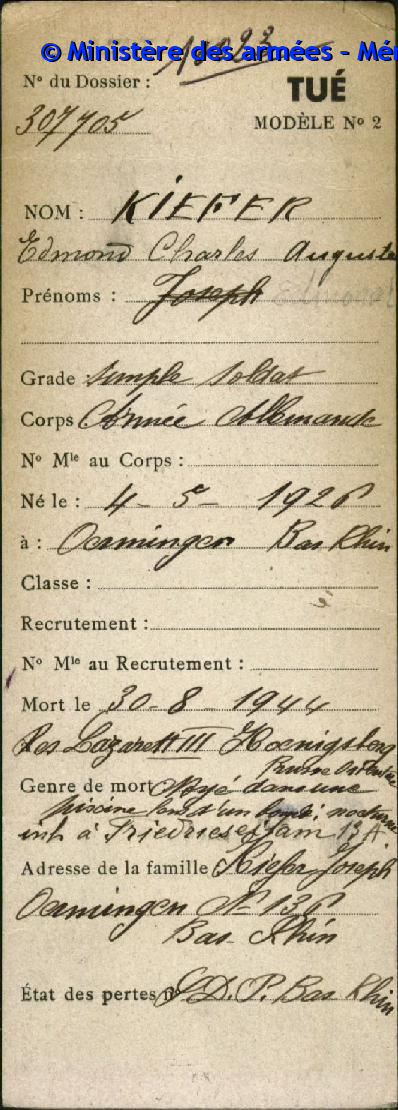 © Ministère des armées - Mém
N° du Dossier :
TUÉ
307705
MODÈLE N° 2
NOM : KIEFER
Edmond Charles Auguste
Prénoms : Joseph Edmond
Grade : simple soldat
Corps Armée Allemande
N° Mle au Corps :
Né le : 4 - 5 - 1926
à : Oermingen Bas Rhin
Classe :
Recrutement :
N° Mle au Recrutement :
Mort le 30 - 8 - 1944
Res Lazarett III Hoenigsberg
Prusse Orientale
Genre de mort Noyé dans une
piscine lors d'un bomb. nocturne
inh à 13 A
Adresse de la famille : Kiefer Joseph
Oermingen N° 136
Bas Rhin
État des pertes n° D. P. Bas Rhin